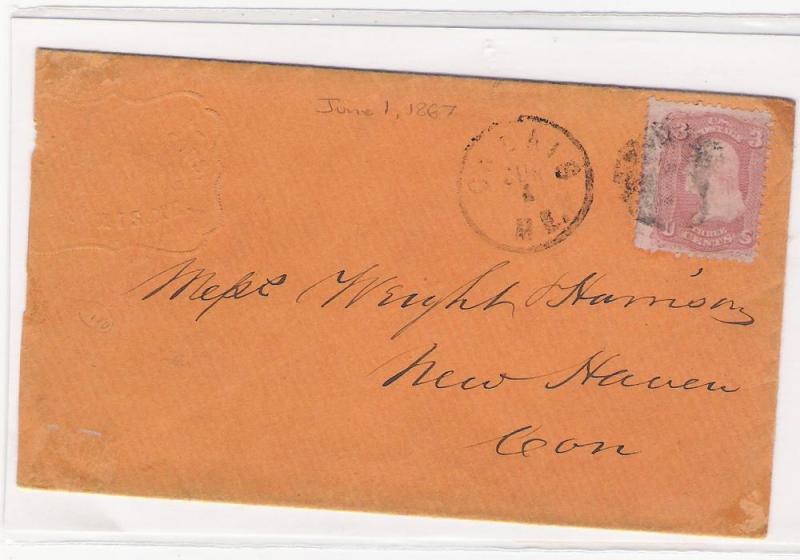 June 1, 1867
CALAIS
JUN
1
ME.
3 U.S. 3
POSTAGE
U THREE S
CENTS
Messrs Weight & Harrison
New Haven
Con